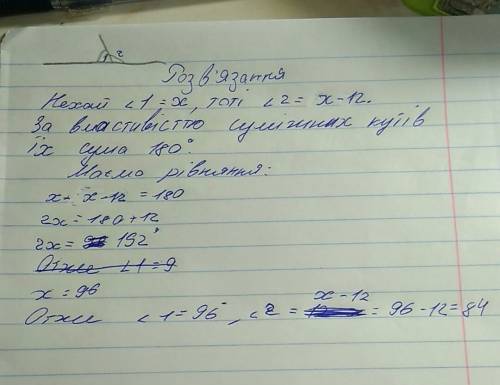 2
Розв'язання
Нехай ∠1 = x, тоті ∠2 = x-12.
За властивістю суміжних кутів
їх сума 180°.
Маємо рівняння:
x+ x-12 = 180
2x = 180+12
2x = 192°
Отже ∠1 = 9
x = 96
Отже ∠1 = 96°, ∠2 = x-12 = 96-12 = 84